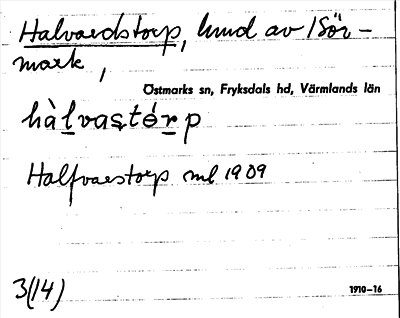 Halvardstorp, hmd av Sör-
mark,
Östmarks sn, Fryksdals hd, Värmlands län
hàlvastórp
Halfvarstorp ml 1909
3(14)
1910–16